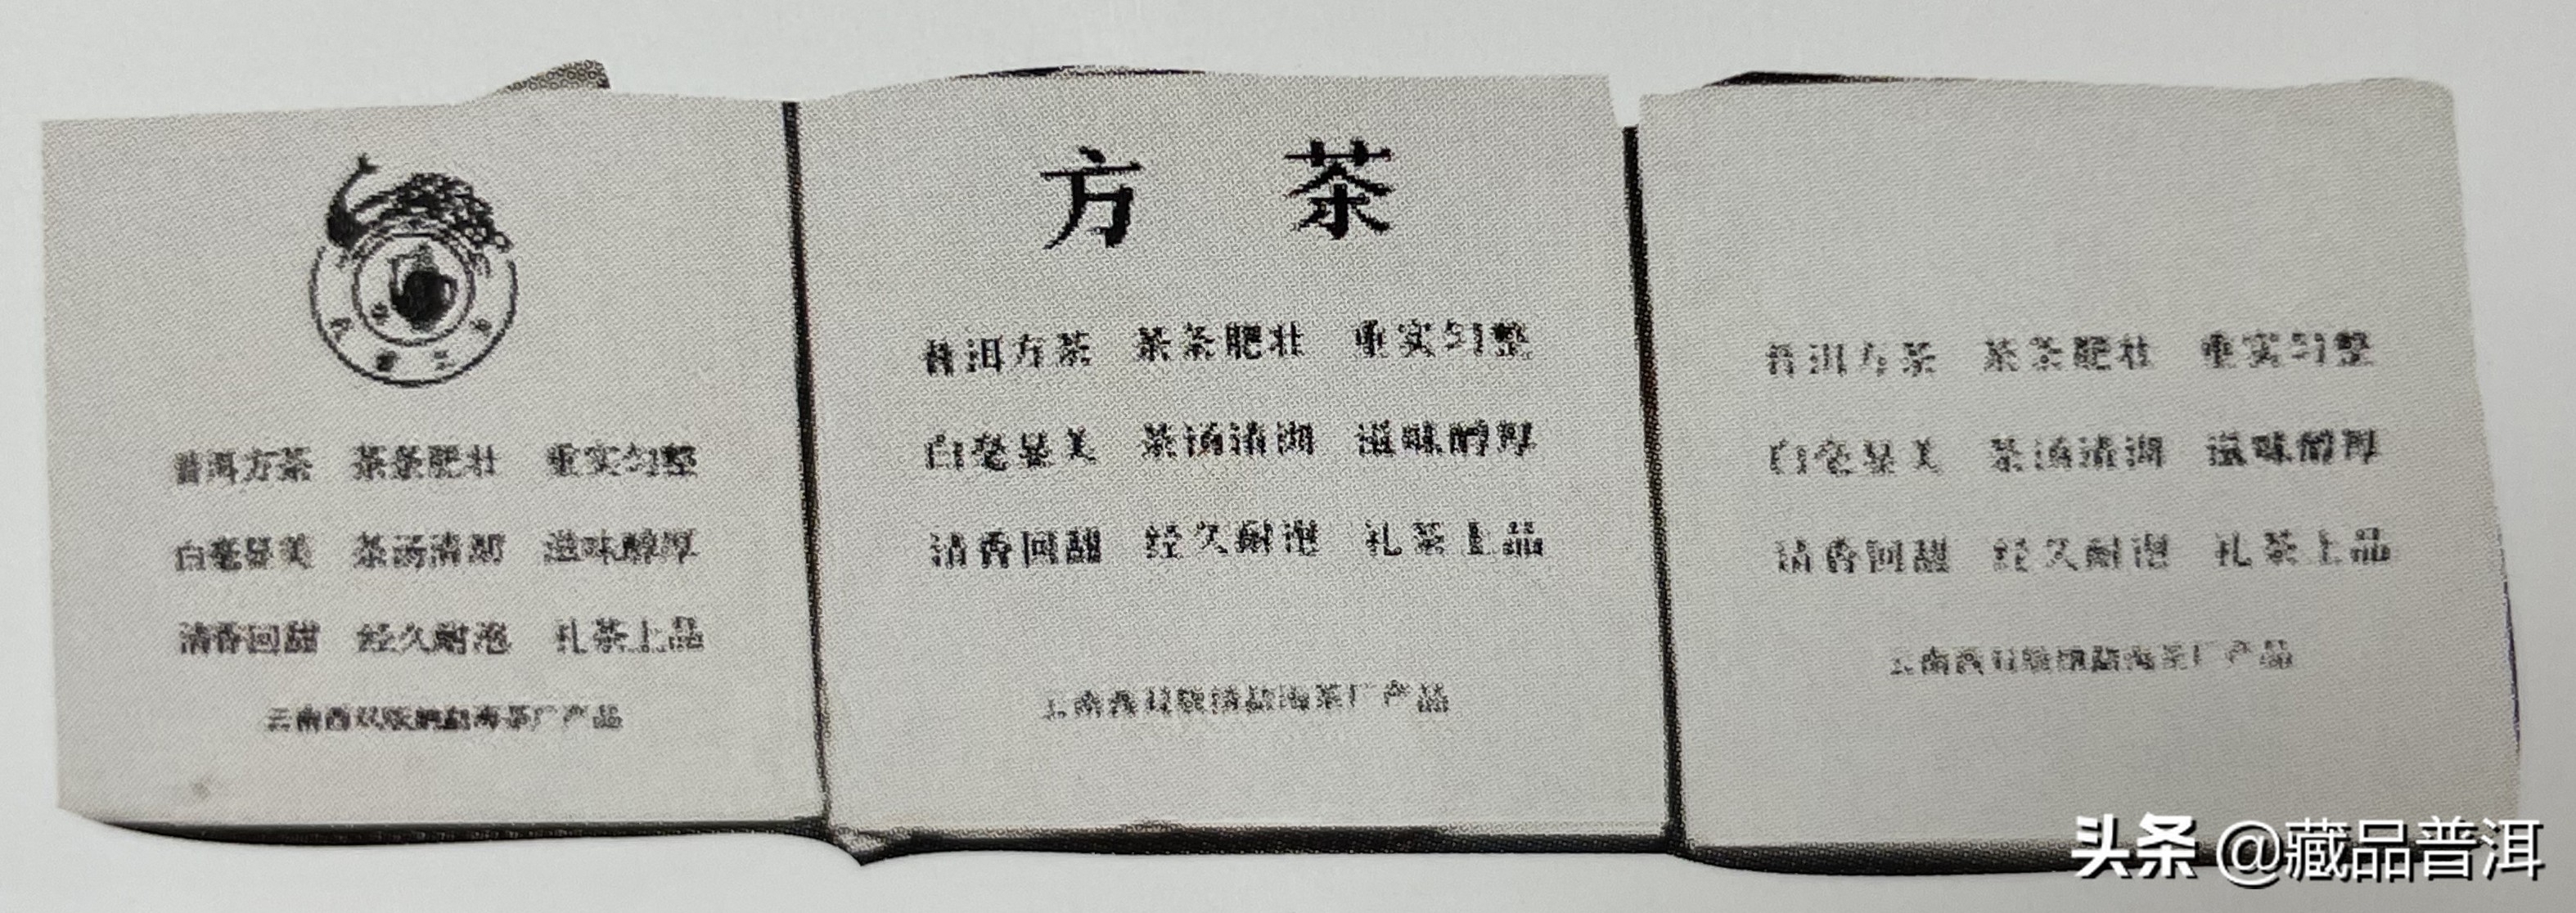 普洱方茶 茶条肥壮 重实匀整
白毫显美 茶汤清澈 滋味醇厚
清香回甜 经久耐泡 礼茶上品
云南西双版纳勐海茶厂产品
方 茶
普洱方茶 茶条肥壮 重实匀整
白毫显美 茶汤清澈 滋味醇厚
清香回甜 经久耐泡 礼茶上品
云南西双版纳勐海茶厂产品
普洱方茶 茶条肥壮 重实匀整
白毫显美 茶汤清澈 滋味醇厚
清香回甜 经久耐泡 礼茶上品
云南西双版纳勐海茶厂产品
头条 @藏品普洱